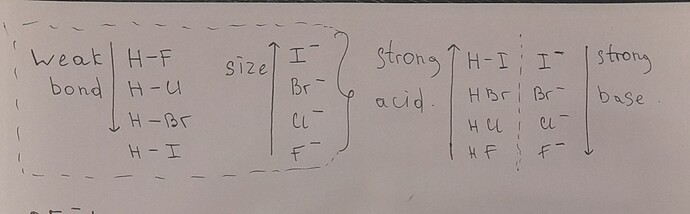 weak bond
H-F
H-Cl
H-Br
H-I
size
I⁻
Br⁻
Cl⁻
F⁻
strong acid.
H-I I⁻
HBr Br⁻
HCl Cl⁻
HF F⁻
strong base.